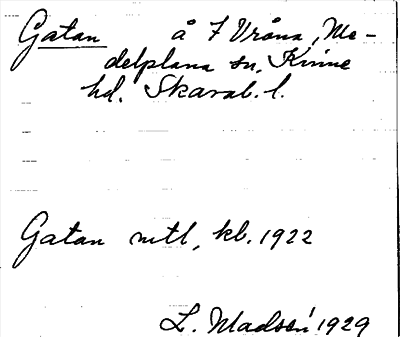 Gatan å 7 Vråna, Me-
delplana sn, Kinne
hd. Skarab. l.
Gatan mtl, kb. 1922
L. Madsén 1929